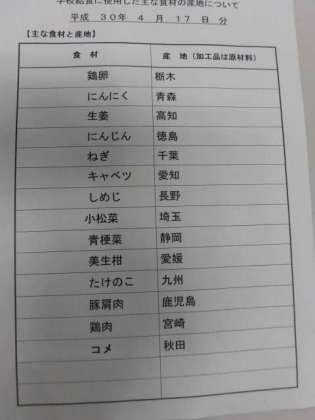 学校給食に使用した主な食材の産地について
平成 30年 4 月 17 日 分
【主な食材と産地】
食 材 産 地（加工品は原材料）
鶏卵 栃木
にんにく 青森
生姜 高知
にんじん 徳島
ねぎ 千葉
キャベツ 愛知
しめじ 長野
小松菜 埼玉
青梗菜 静岡
美生柑 愛媛
たけのこ 九州
豚肩肉 鹿児島
鶏肉 宮崎
コメ 秋田